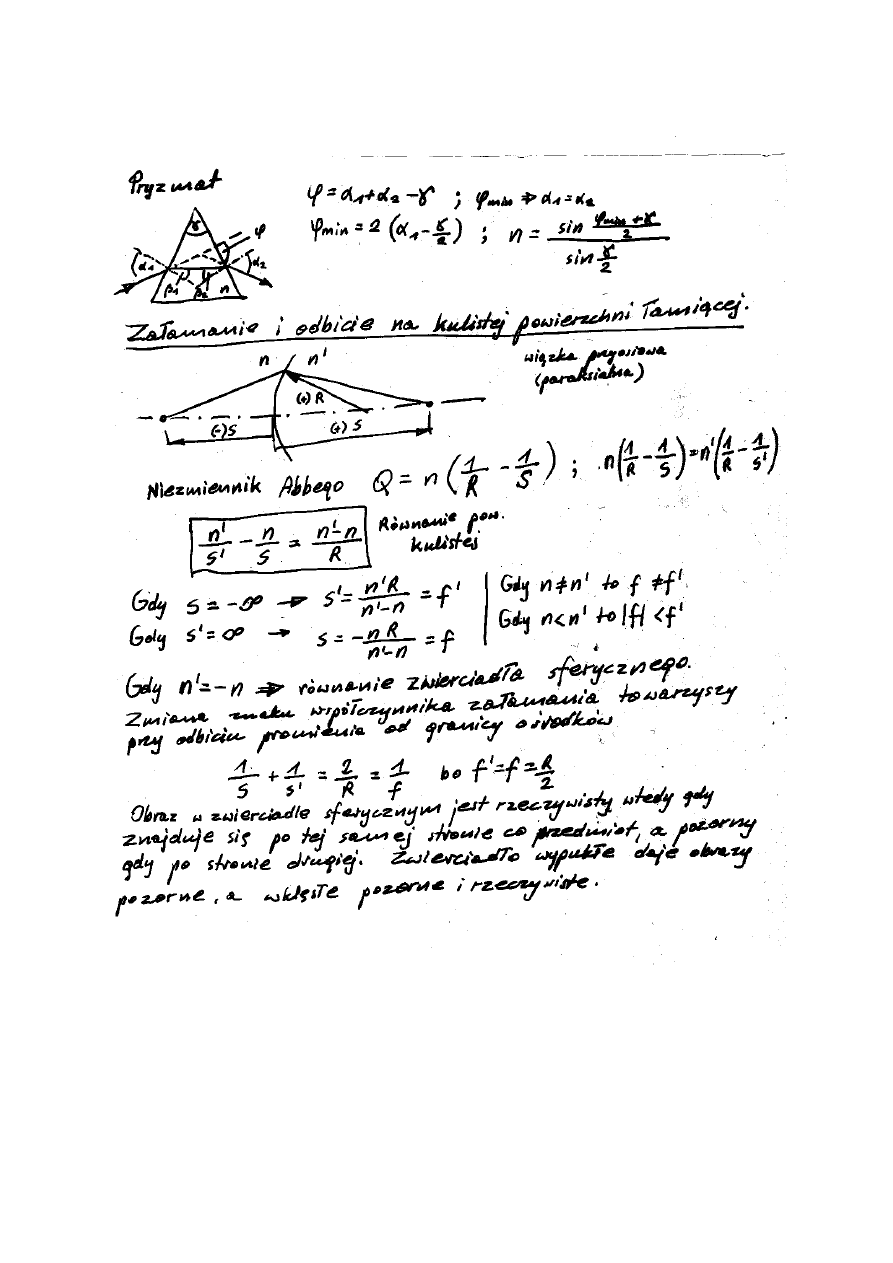 Pryzmat
φ = α₁+α₂ − γ ; φmin ⇒ α₁=α₂
φmin = 2 (α₁ − γ/2) ; n = sin (φmin + γ)/2 / sin γ/2
γ φ α₁ α₂ β₁ β₂ ψ n
Załamanie i odbicie na kulistej powierzchni łamiącej.
n n'
wiązka przyosiowa
(paraksialna)
(+) R
(-)S (+) S
Niezmiennik Abbego Q = n (1/R − 1/S) ; n(1/R − 1/S) = n'(1/R − 1/S')
n'/S' − n/S = n'-n/R
Równanie pow.
kulistej
Gdy S = -∞ → S' = n'R/n'-n = f'
Gdy S' = ∞ → S = − nR/n'-n = f
Gdy n≠n' to f ≠f'
Gdy n<n' to |f| <f'
Gdy n'=-n ⇒ równanie zwierciadła sferycznego.
Zmiana znaku współczynnika załamania towarzyszy
przy odbiciu promienia od granicy ośrodków
1/S + 1/S' = 2/R = 1/f bo f'=f=R/2
Obraz w zwierciadle sferycznym jest rzeczywisty wtedy gdy
znajduje się po tej samej stronie co przedmiot, a pozorny
gdy po stronie drugiej. Zwierciadło wypukłe daje obrazy
pozorne, a wklęsłe pozorne i rzeczywiste.